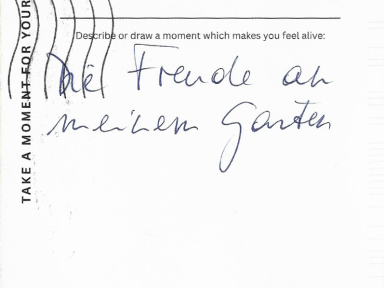 Describe or draw a moment which makes you feel alive:
Die Freude an
meinem Garten
TAKE A MOMENT FOR YOUR